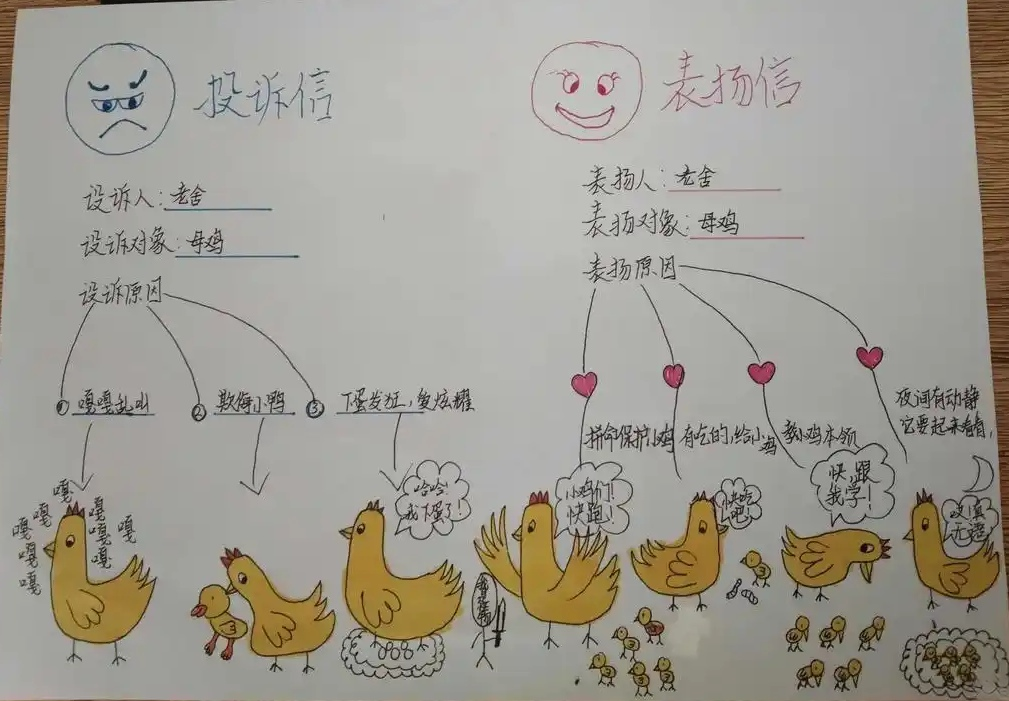 投诉信
设诉人:老舍
设诉对象:母鸡
设诉原因
① 嘎嘎乱叫
② 欺侮小鸭
③ 下蛋发狂,爱炫耀
嘎
嘎
嘎
嘎
嘎
嘎
嘎
嘎
嘎
哈哈!
我下蛋了!
表扬信
表扬人:老舍
表扬对象:母鸡
表扬原因
拼命保护小鸡
有吃的,给小鸡
教小鸡本领
夜间有动静
它要起来看看,
小鸡们!
快跑!
快吃
吧!
快,跟
我学!